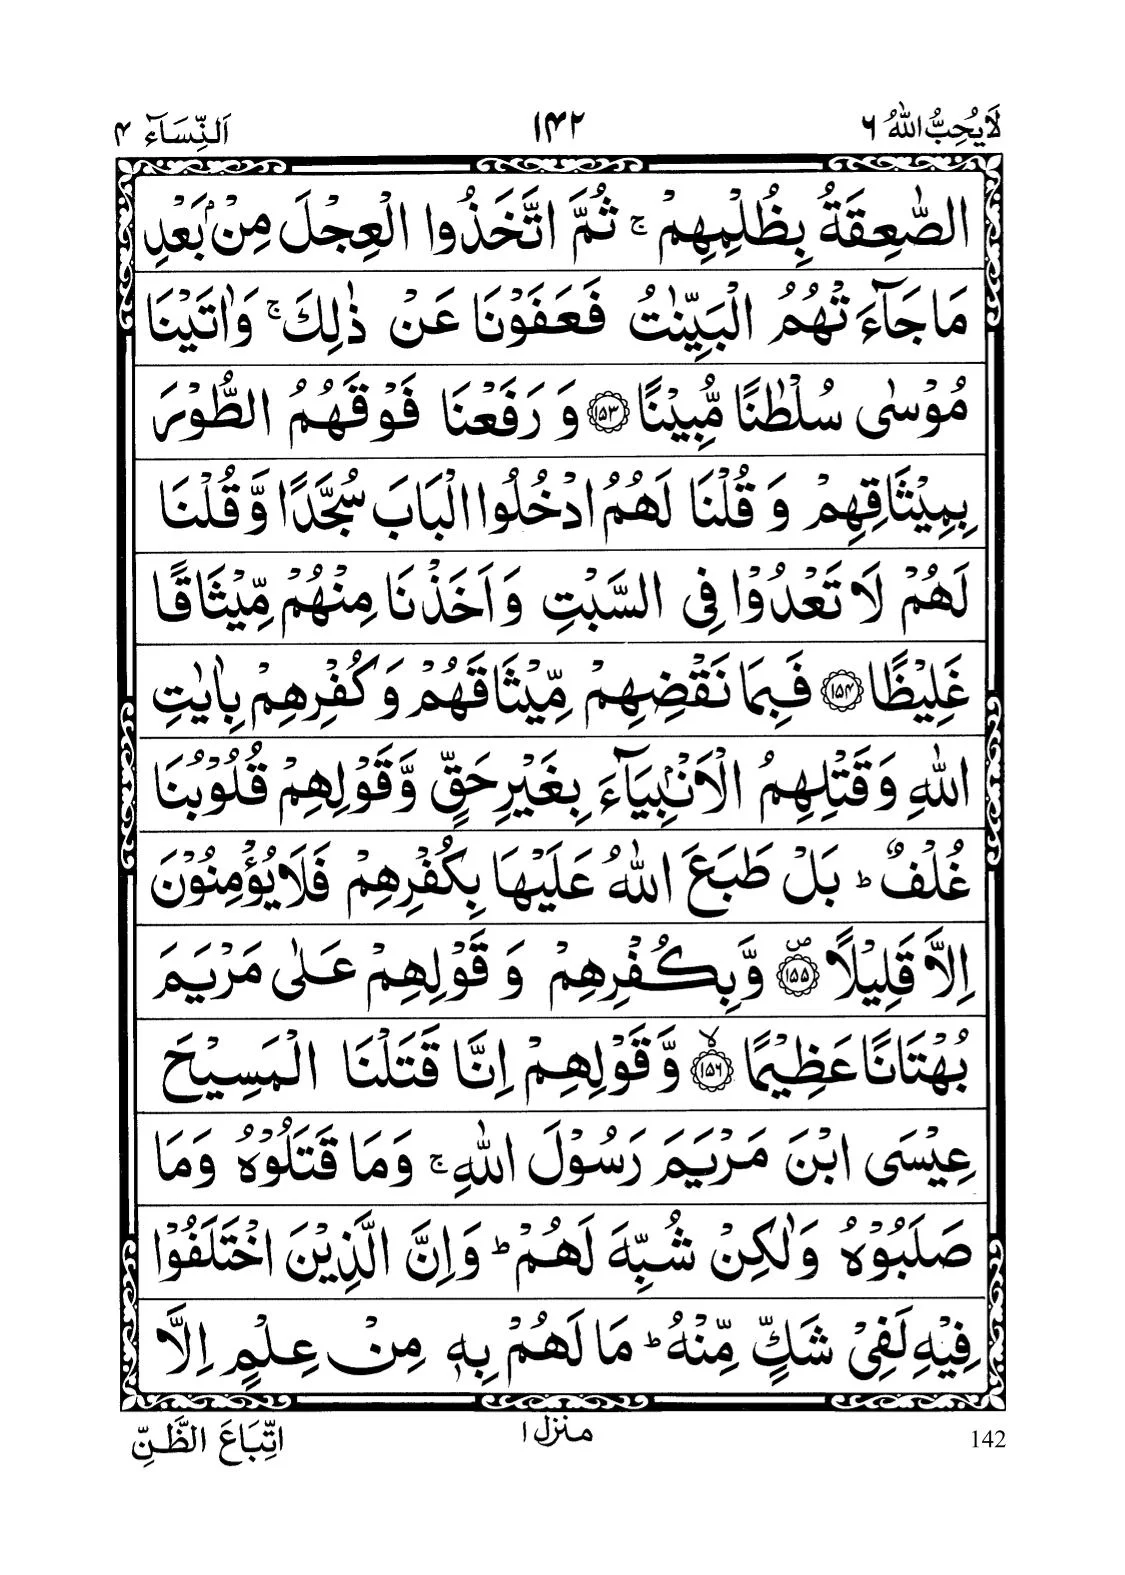 لَا يُحِبُّ اللّٰهُ ٦
١٤٢
اَلنِّسَآء ٤
الصّٰعِقَةُ بِظُلْمِهِمْ ۚ ثُمَّ اتَّخَذُوا الْعِجْلَ مِنْۢ بَعْدِ
مَا جَآءَتْهُمُ الْبَيِّنٰتُ فَعَفَوْنَا عَنْ ذٰلِكَ ۚ وَاٰتَيْنَا
مُوْسٰى سُلْطٰنًا مُّبِيْنًا ﴿١٥٣﴾ وَ رَفَعْنَا فَوْقَهُمُ الطُّوْرَ
بِمِيْثَاقِهِمْ وَ قُلْنَا لَهُمُ ادْخُلُوا الْبَابَ سُجَّدًا وَّ قُلْنَا
لَهُمْ لَا تَعْدُوْا فِى السَّبْتِ وَ اَخَذْنَا مِنْهُمْ مِّيْثَاقًا
غَلِيْظًا ﴿١٥٤﴾ فَبِمَا نَقْضِهِمْ مِّيْثَاقَهُمْ وَ كُفْرِهِمْ بِاٰيٰتِ
اللّٰهِ وَ قَتْلِهِمُ الْاَنْۢبِيَآءَ بِغَيْرِ حَقٍّ وَّ قَوْلِهِمْ قُلُوْبُنَا
غُلْفٌ ؕ بَلْ طَبَعَ اللّٰهُ عَلَيْهَا بِكُفْرِهِمْ فَلَا يُؤْمِنُوْنَ
اِلَّا قَلِيْلًا ﴿١٥٥﴾ۖ وَّ بِكُفْرِهِمْ وَ قَوْلِهِمْ عَلٰى مَرْيَمَ
بُهْتَانًا عَظِيْمًا ﴿١٥٦﴾ۙ وَّ قَوْلِهِمْ اِنَّا قَتَلْنَا الْمَسِيْحَ
عِيْسَى ابْنَ مَرْيَمَ رَسُوْلَ اللّٰهِ ۚ وَ مَا قَتَلُوْهُ وَ مَا
صَلَبُوْهُ وَ لٰكِنْ شُبِّهَ لَهُمْ ؕ وَ اِنَّ الَّذِيْنَ اخْتَلَفُوْا
فِيْهِ لَفِىْ شَكٍّ مِّنْهُ ؕ مَا لَهُمْ بِهٖ مِنْ عِلْمٍ اِلَّا
اتِّبَاعَ الظَّنِّ
منزل ١
142